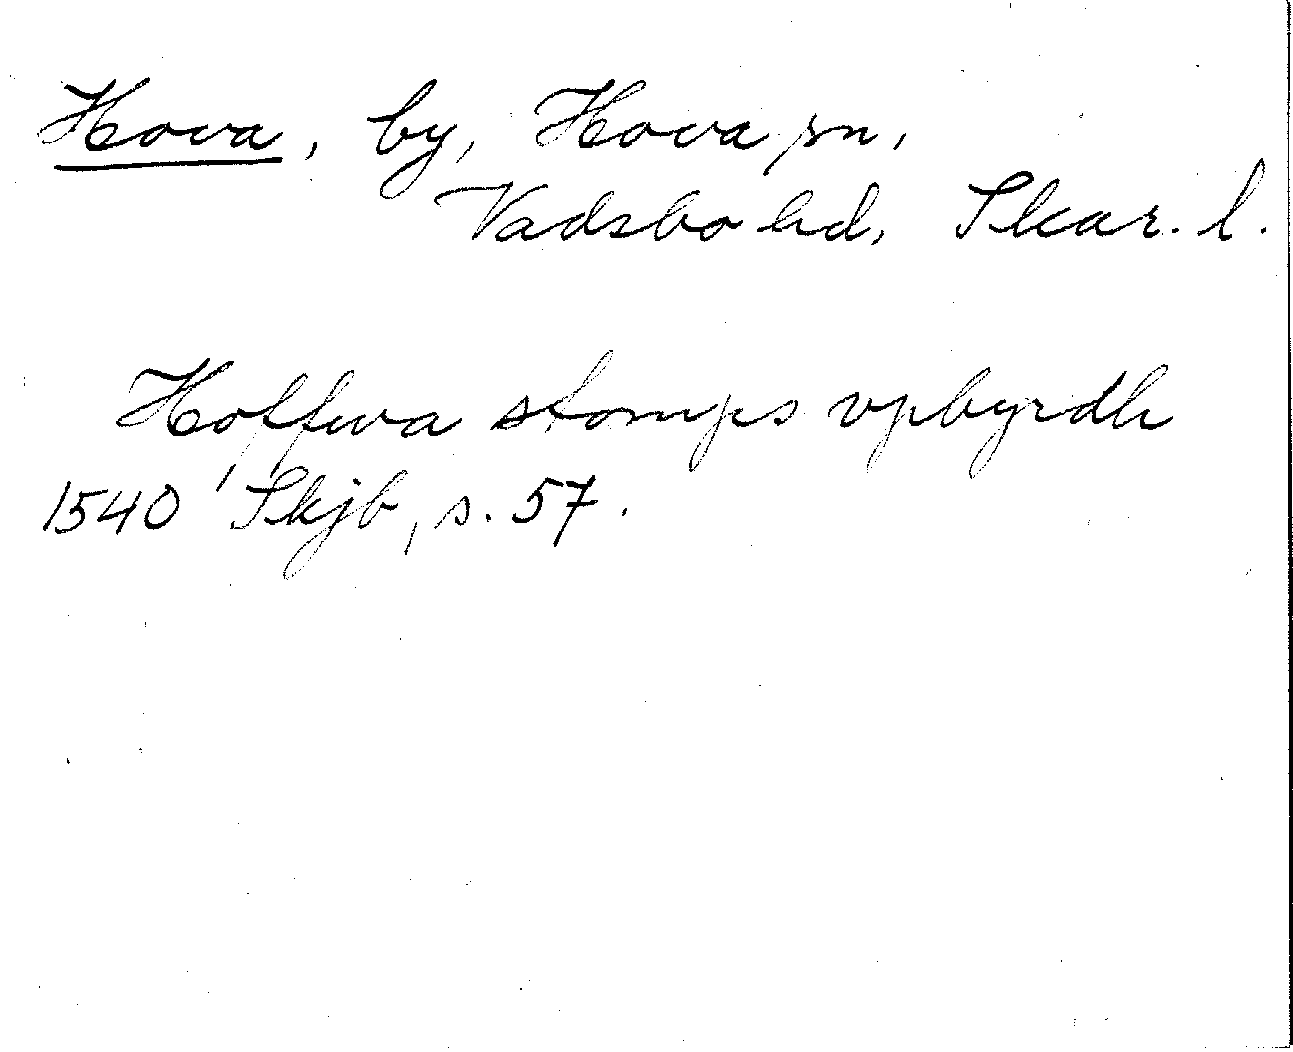 Hova, by, Hova sn,
Vadsbo hd, Skar. l.
Hoffwa stomps vpbyrdh
1540 Skjb, s. 57.